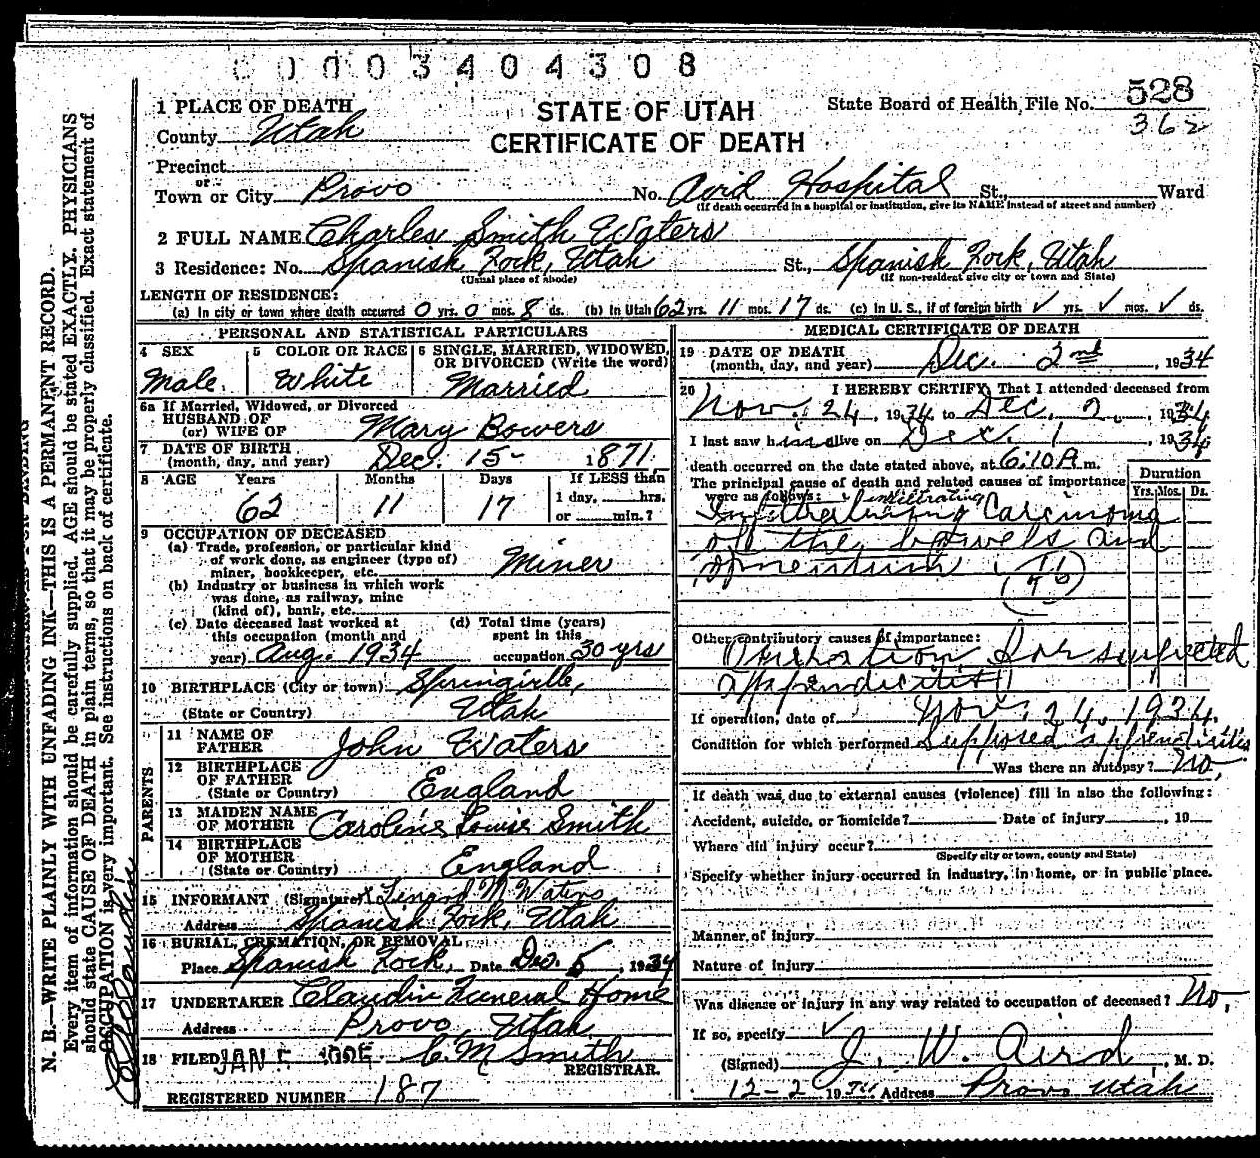 0003404308
1 PLACE OF DEATH
STATE OF UTAH
CERTIFICATE OF DEATH
State Board of Health File No. 528
362
County Utah
Precinct
or
Town or City Provo No. Aird Hospital St., Ward
(If death occurred in a hospital or institution, give its NAME instead of street and number)
2 FULL NAME Charles Smith Waters
3 Residence: No. Spanish Fork, Utah St., Spanish Fork, Utah
(Usual place of abode) (If non-resident give city or town and State)
LENGTH OF RESIDENCE:
(a) In city or town where death occurred 0 yrs. 0 mos. 8 ds. (b) In Utah 62 yrs. 11 mos. 17 ds. (c) In U. S., if of foreign birth ✓ yrs. ✓ mos. ✓ ds.
PERSONAL AND STATISTICAL PARTICULARS
4 SEX
Male.
5 COLOR OR RACE
White
6 SINGLE, MARRIED, WIDOWED,
OR DIVORCED (Write the word)
Married
6a If Married, Widowed, or Divorced
HUSBAND OF
(or) WIFE OF Mary Bowers
7 DATE OF BIRTH
(month, day, and year) Dec. 15- 1871.
8 AGE Years Months Days If LESS than
62 11 17 1 day, hrs.
or min.?
9 OCCUPATION OF DECEASED
(a) Trade, profession, or particular kind
of work done, as engineer (type of)
miner, bookkeeper, etc. Miner
(b) Industry or business in which work
was done, as railway, mine
(kind of), bank, etc.
(c) Date deceased last worked at
this occupation (month and
year) Aug. 1934
(d) Total time (years)
spent in this
occupation 30 yrs
10 BIRTHPLACE (City or town) Springville,
(State or Country) Utah
PARENTS
11 NAME OF
FATHER John Waters
12 BIRTHPLACE
OF FATHER
(State or Country) England
13 MAIDEN NAME
OF MOTHER Caroline Louise Smith
14 BIRTHPLACE
OF MOTHER
(State or Country) England
15 INFORMANT (Signature) x M Waters
Address Spanish Fork, Utah
16 BURIAL, CREMATION, OR REMOVAL
Place Spanish Fork, Date Dec. 5, 1934
17 UNDERTAKER Claudin Funeral Home
Address Provo, Utah
18 FILED JAN C M Smith
REGISTRAR.
REGISTERED NUMBER 187
MEDICAL CERTIFICATE OF DEATH
19 DATE OF DEATH
(month, day, and year) Dec. 2nd, 1934
20 I HEREBY CERTIFY, That I attended deceased from
Nov. 24, 1934 to Dec. 2, 1934
I last saw him alive on Dec. 1, 1934
death occurred on the date stated above, at 6:10 A m.
The principal cause of death and related causes of importance
were as follows:
Duration
Yrs. Mos. Ds.
infiltrating
Carcinoma
of the bowels and
omentum
46
Other contributory causes of importance:
Operation for suspected
appendicitis
If operation, date of Nov. 24, 1934.
Condition for which performed Supposed appendicitis
Was there an autopsy? No,
If death was due to external causes (violence) fill in also the following:
Accident, suicide, or homicide? Date of injury , 19
Where did injury occur?
(Specify city or town, county and State)
Specify whether injury occurred in industry, in home, or in public place.
Manner of injury
Nature of injury
Was disease or injury in any way related to occupation of deceased? No,
If so, specify ✓
(Signed) J. W. Aird, M. D.
12-2 1934 Address Provo Utah
N. B.—WRITE PLAINLY WITH UNFADING INK—THIS IS A PERMANENT RECORD.
Every item of information should be carefully supplied. AGE should be stated EXACTLY. PHYSICIANS
should state CAUSE OF DEATH in plain terms, so that it may be properly classified. Exact statement of
OCCUPATION is very important. See instructions on back of certificate.